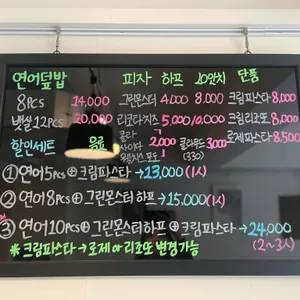 연어덮밥 피자 하프 10인치 단품
8pcs 14,000 그린몬스터 4.000 8.000 크림파스타 8,000
뱃살12pcs 20,000 리코타치즈 5.000 10.000 크림리조또 8,000
할인세트 음료 콜라 사이다 2,000 클라우드 3,000 로제파스타 8,500
웰치스.포도 (330)
① 연어5pcs⊕크림파스타→13,000(1人)
② 연어8pcs⊕그린몬스터하프→15.000(1人)
③ 연어10pcs⊕그린몬스터하프⊕크림파스타→24,000
(2~3人)
* 크림파스타→로제 or 리조또 변경가능